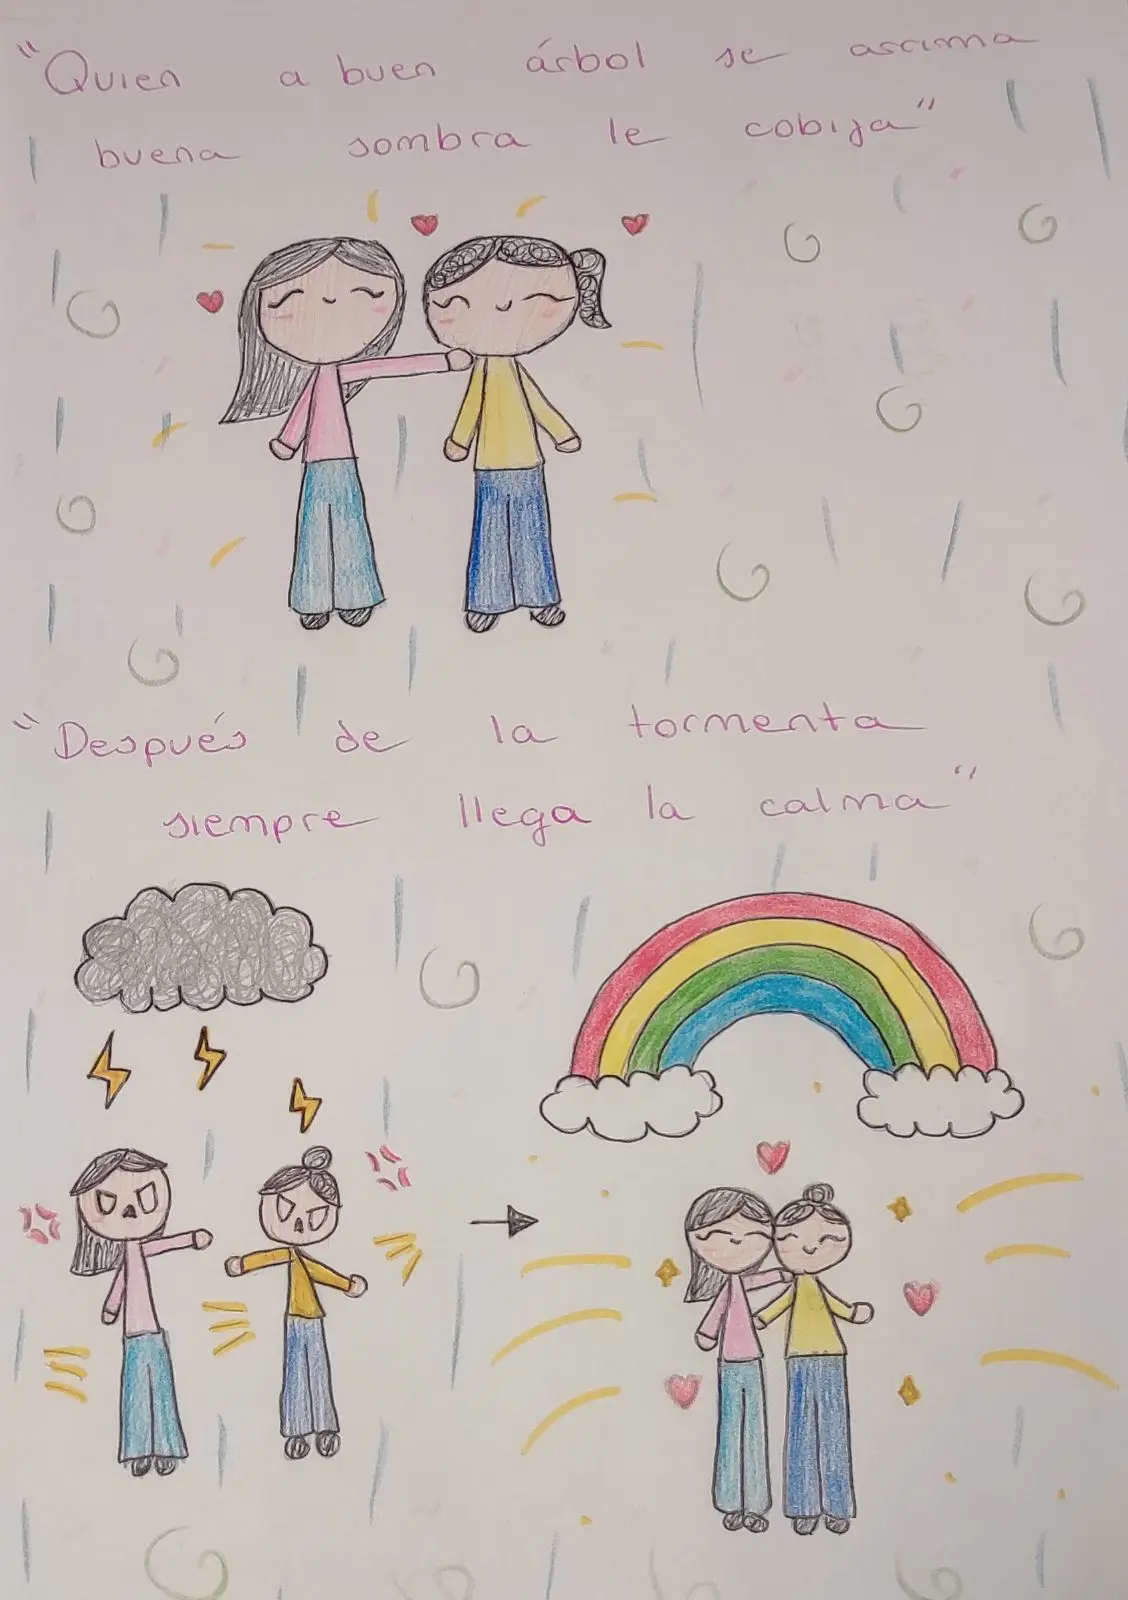 "Quien a buen árbol se arrima
buena sombra le cobija"
"Después de la tormenta
siempre llega la calma"